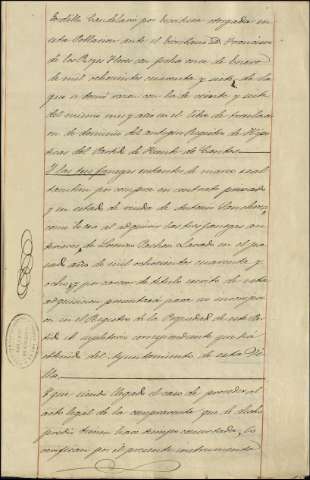 Castilla Candelario por escritura otorgada en
esta Poblacion ante el Escribano D. Francisco
de los Reyes Flores con fecha once de Enero
de mil ochocientos cuarenta y siete, de la
que se tomó razon con la de veinte y siete
del mismo mes y año en el libro de traslacion
de dominio del antiguo Registro de Hipo
tecas del Partido de Fuente de Cantos.
Y las tres fanegas restantes de marco real
tambien por compra en contrato privado
y en estado de viudo de Antonio
como lo era al adquirir las tres fanegas an
teriores, de Lorenzo Lavado en el pa
sado año de mil ochocientos cuarenta y
ocho; y por carecer de titulo escrito de esta
adquisicion presentará para su inscripcion
en el Registro de la Propiedad de este Par
tido el espediente correspondiente que há
obtenido del Ayuntamiento de esta Vi
lla.
Y que siendo llegado el caso de proceder al
acto legal de la compraventa que de dicho
predio tienen hace tiempo concertada, lo
verifican por el presente instrumento